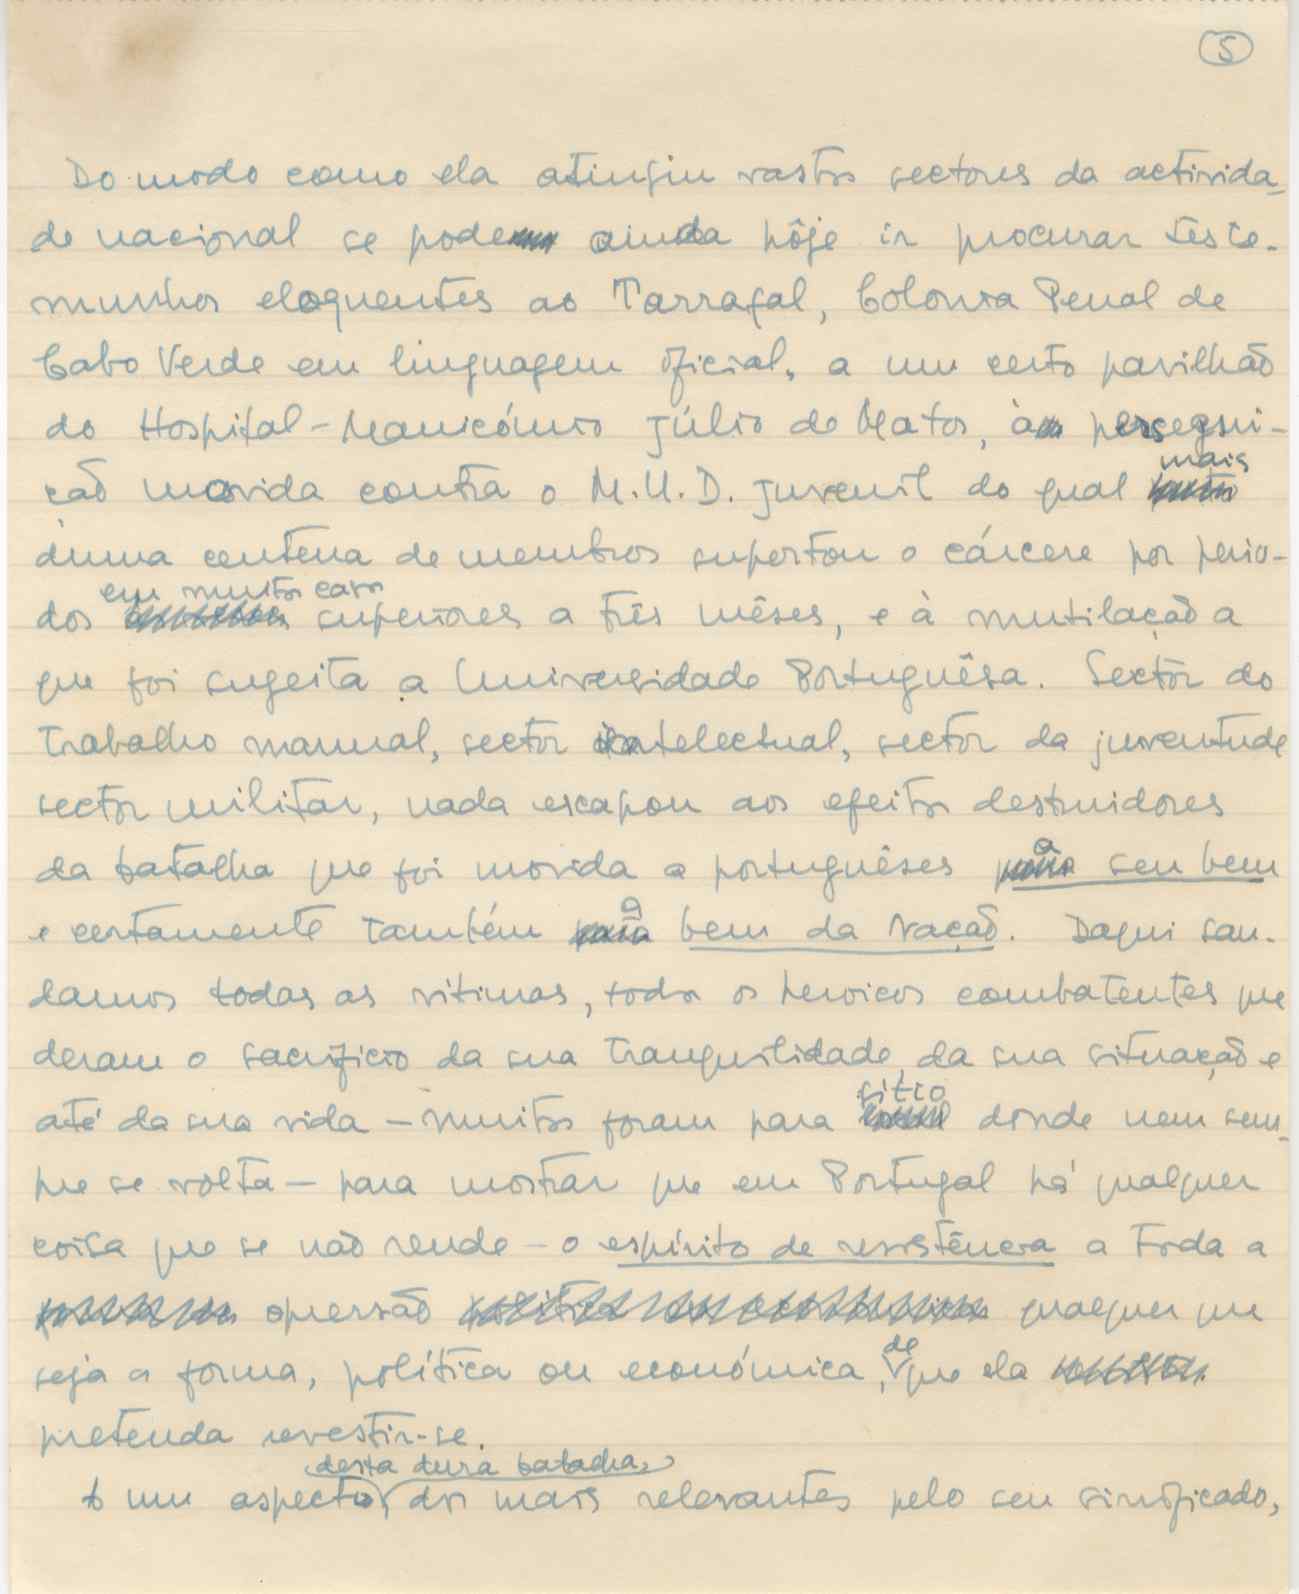 5
Do modo como ela atingiu vastos sectores da activida-
de nacional se pode ainda hôje ir procurar teste-
munhos eloquentes ao Tarrafal, Colonia Penal de
Cabo Verde em linguagem oficial, a um certo pavilhão
do Hospital-Manicómio Júlio de Matos, à persegui-
mais
ção movida contra o M.U.D. juvenil do qual
duma centena de membros suportou o cárcere por perio-
em muitos casos
dos superiores a três mêses, e à mutilação a
que foi sugeita a Universidade Portuguêsa. Sector do
trabalho manual, sector intelectual, sector da juventude
sector militar, nada escapou aos efeitos destruidores
a
da batalha que foi movida a portuguêses seu bem
a
e certamente também bem da Nação. Daqui sau-
damos todas as vitimas, todos os heroicos combatentes que
deram o sacrificio da sua tranquilidade, da sua situação e
sitio
até da sua vida - muitos foram para donde nem sem-
pre se volta - para mostrar que em Portugal há qualquer
coisa que se não rende - o espírito de resistência a toda a
opressão qualquer que
de
seja a forma, política ou económica, que ela
pretenda revestir-se.
desta dura batalha,
E um aspecto, dos mais relevantes pelo seu sinificado,